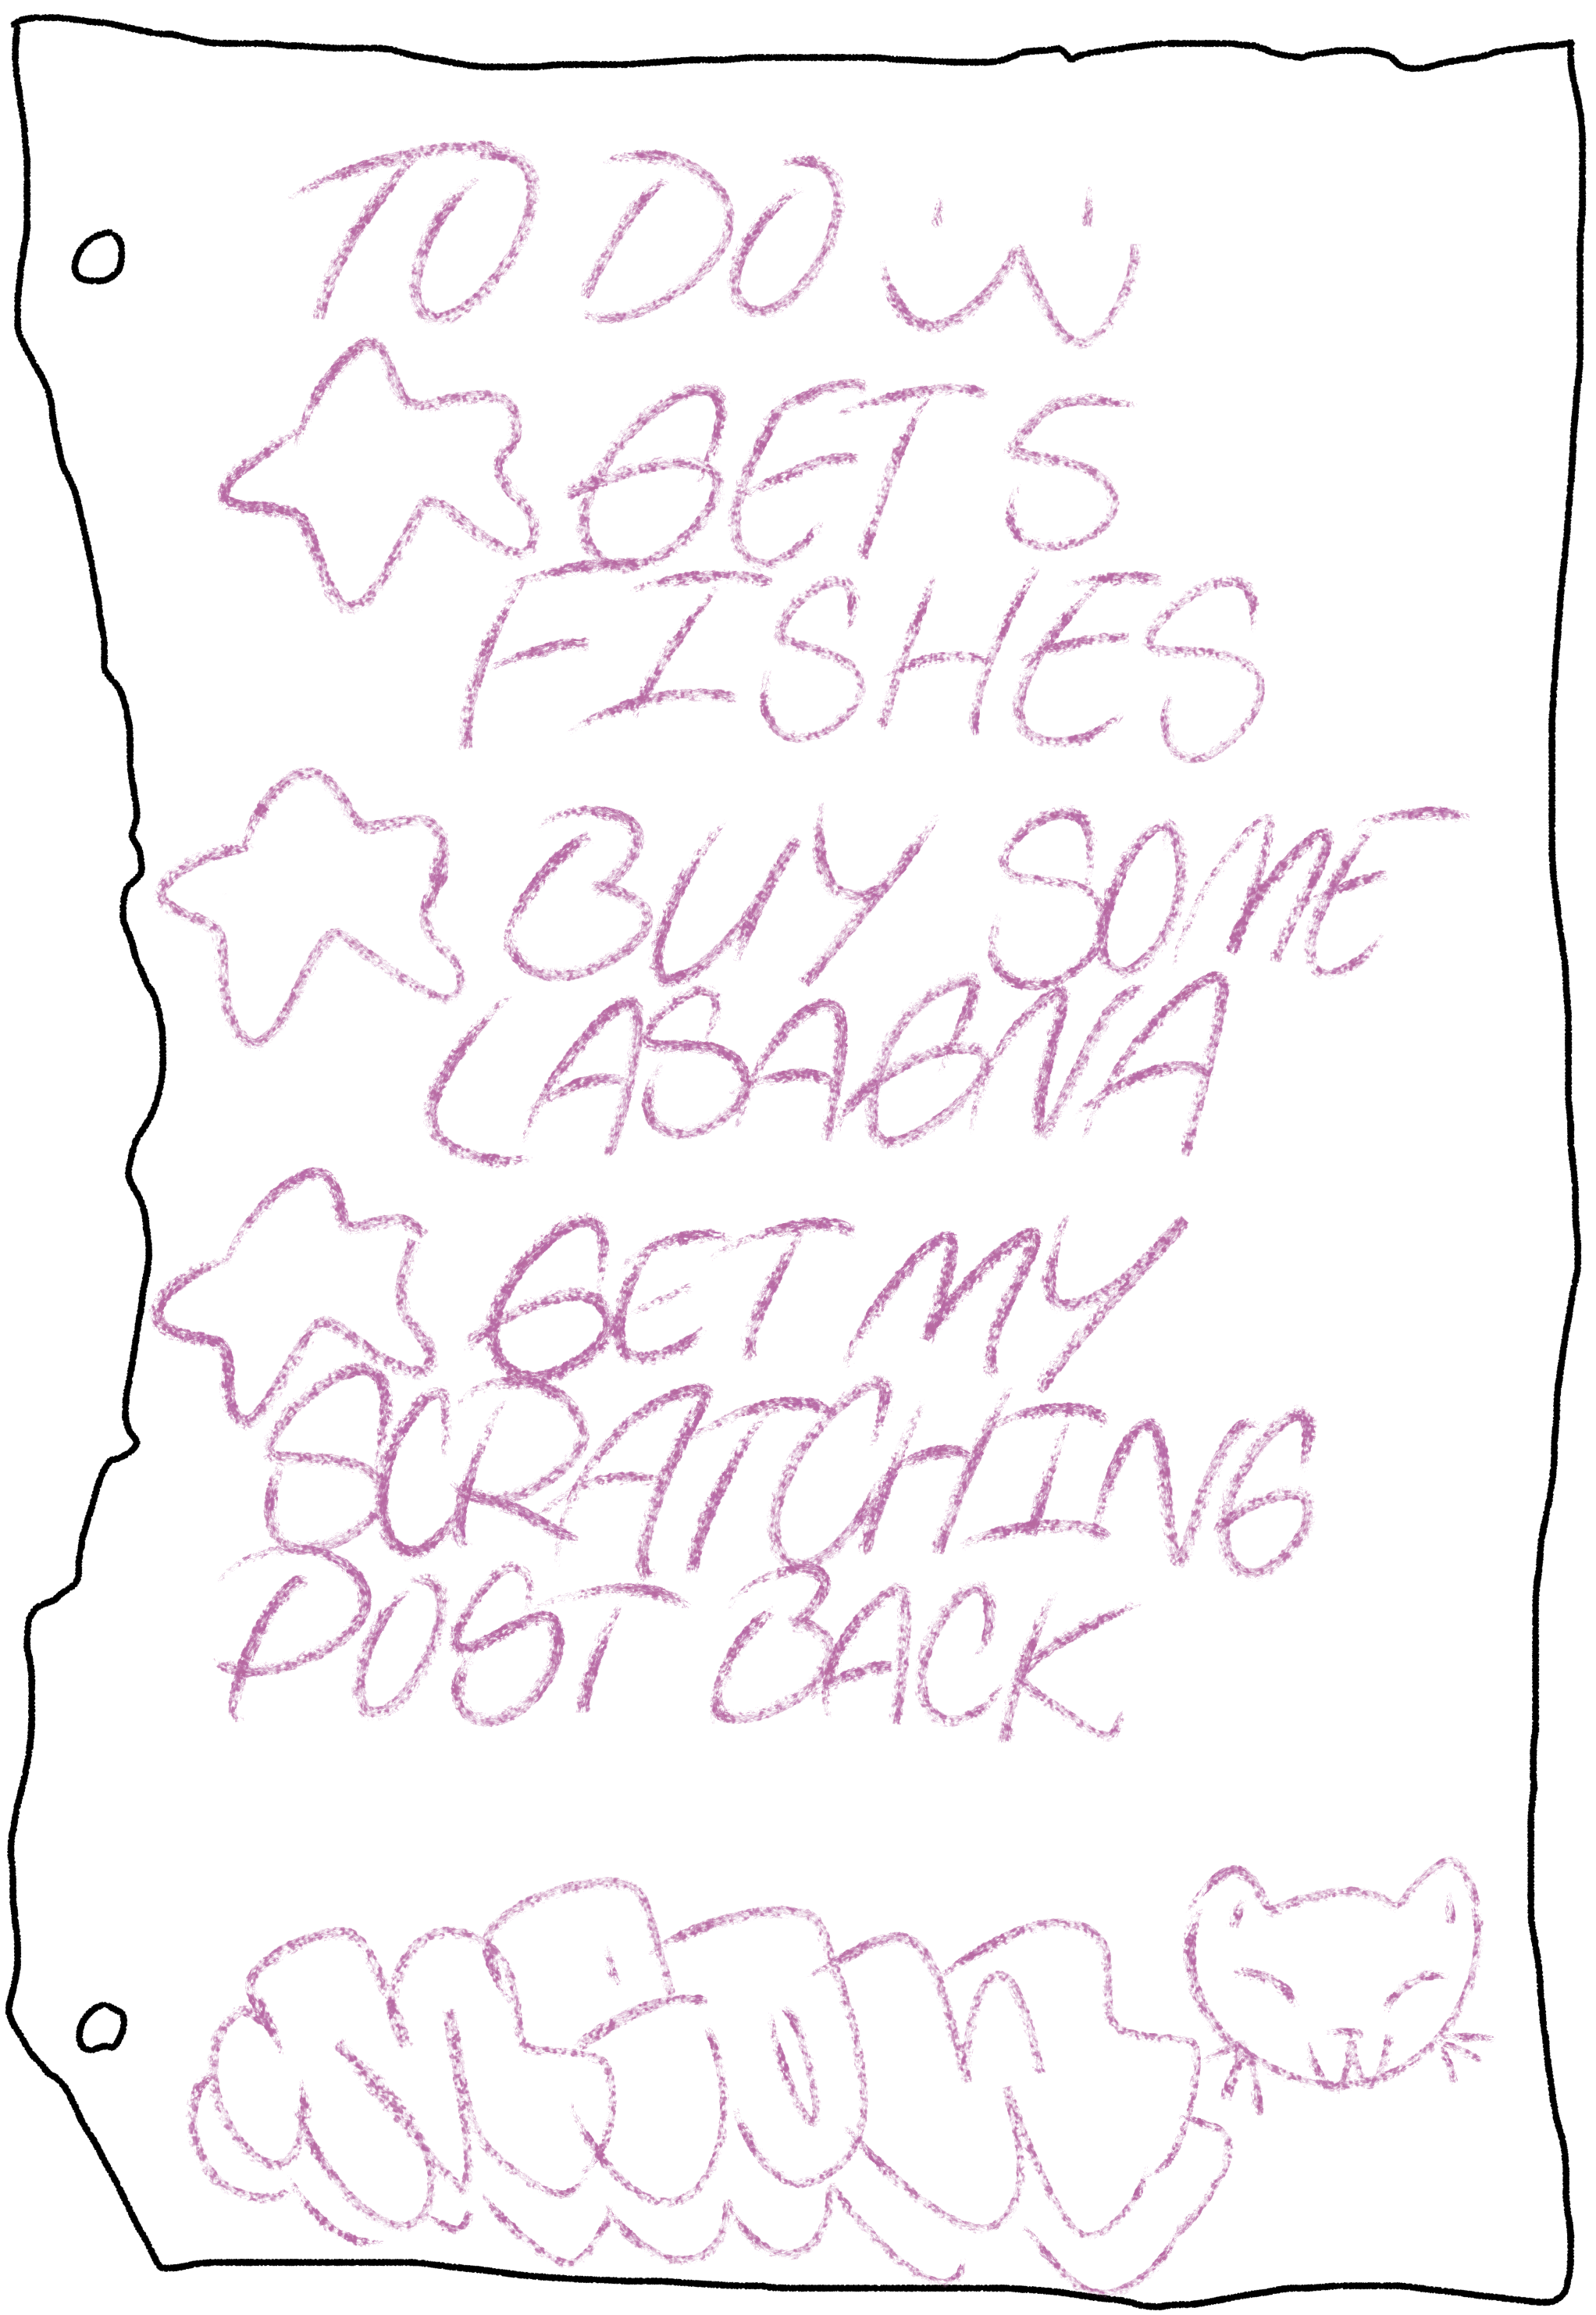 TO DO :W
GET 5
FISHES
BUY SOME
LASAGNA
GET MY
SCRATCHING
POST BACK
MEOW